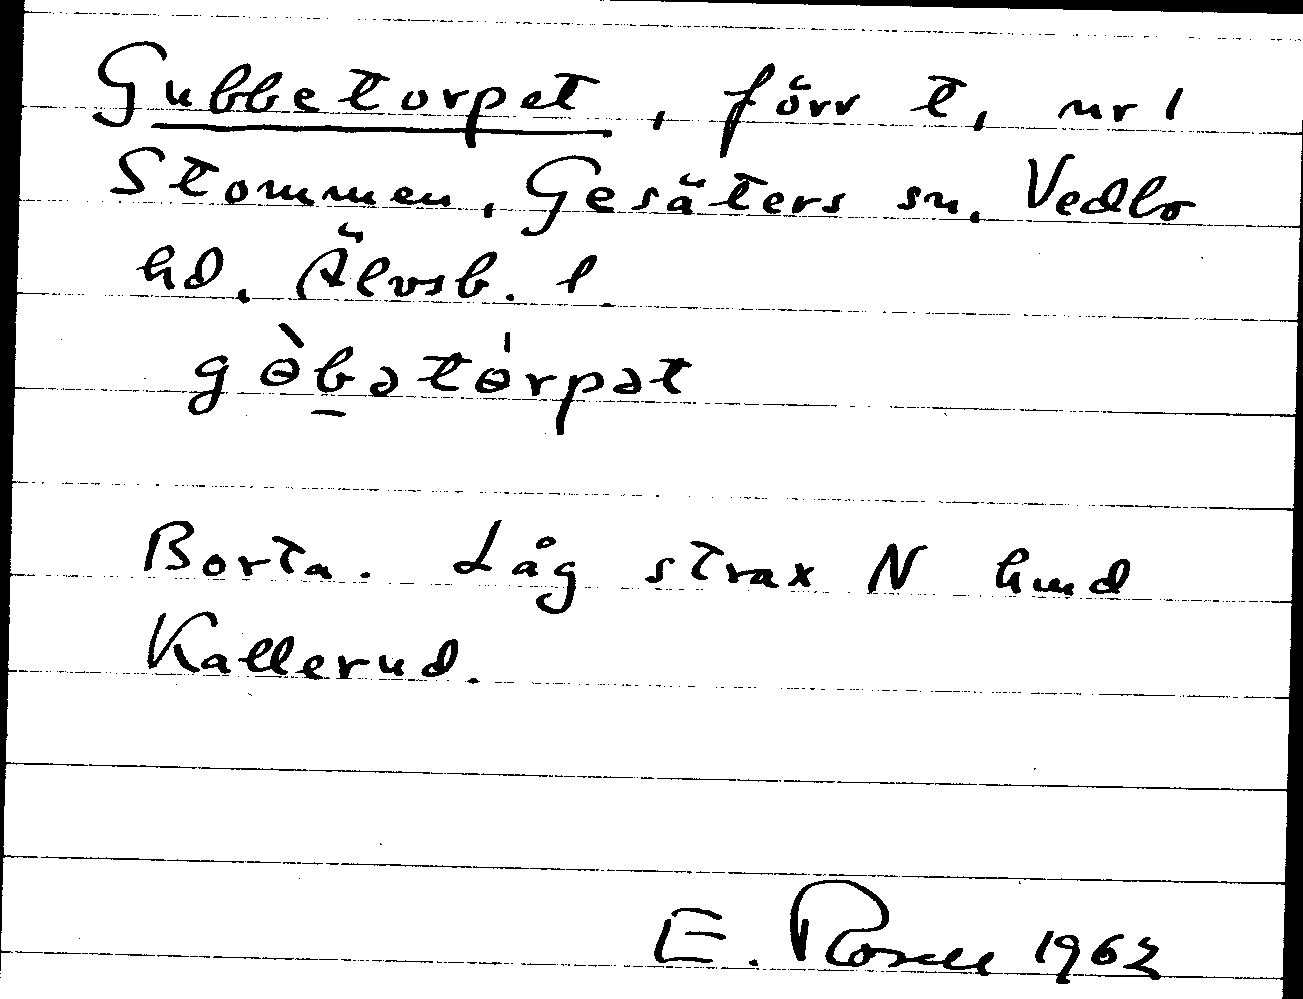 Gubbetorpet, förr t, nr 1
Stommen, Gesäters sn. Vedbo
hd. Älvsb. l.
gɵ̀b̲ətɵ́rpət
Borta. Låg strax N hmd
Kallerud.
E. Rosell 1962